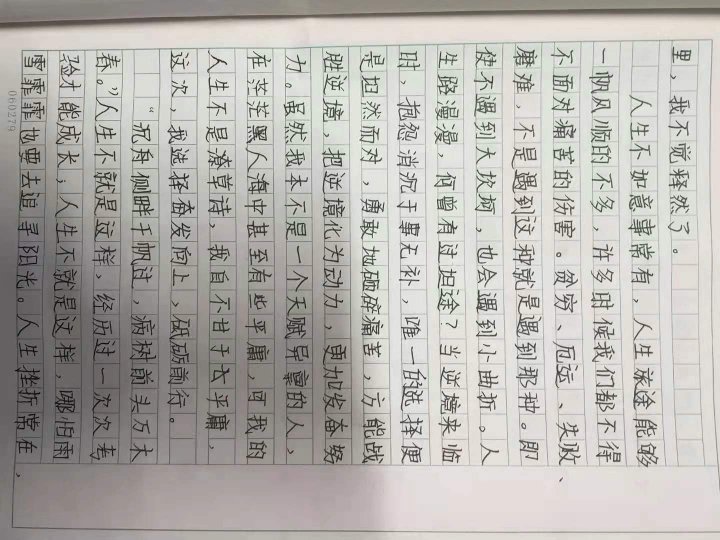 里，我不觉释然了。
人生不如意事常有，人生旅途能够
一帆风顺的不多，许多时候我们都不得
不面对痛苦的伤害。贫穷、厄运、失败、
磨难，不是遇到这种就是遇到那种。即
使不遇到大坎坷，也会遇到小曲折。人
生路漫漫，何曾有过坦途？当逆境来临
时，抱怨消沉于事无补，唯一的选择便
是坦然而对，勇敢地砸碎痛苦，方能战
胜逆境，把逆境化为动力，更加发奋努
力。虽然我本不是一个天赋异禀的人，
在茫茫黑人海中甚至有些平庸，可我的
人生不是潦草诗，我自不甘于太平庸，
这次，我选择奋发向上，砥砺前行。
“沉舟侧畔千帆过，病树前头万木
春。”人生不就是这样，经历过一次次考
验才能成长，人生不就是这样，哪怕雨
雪霏霏也要去追寻阳光。人生挫折常在，
060279